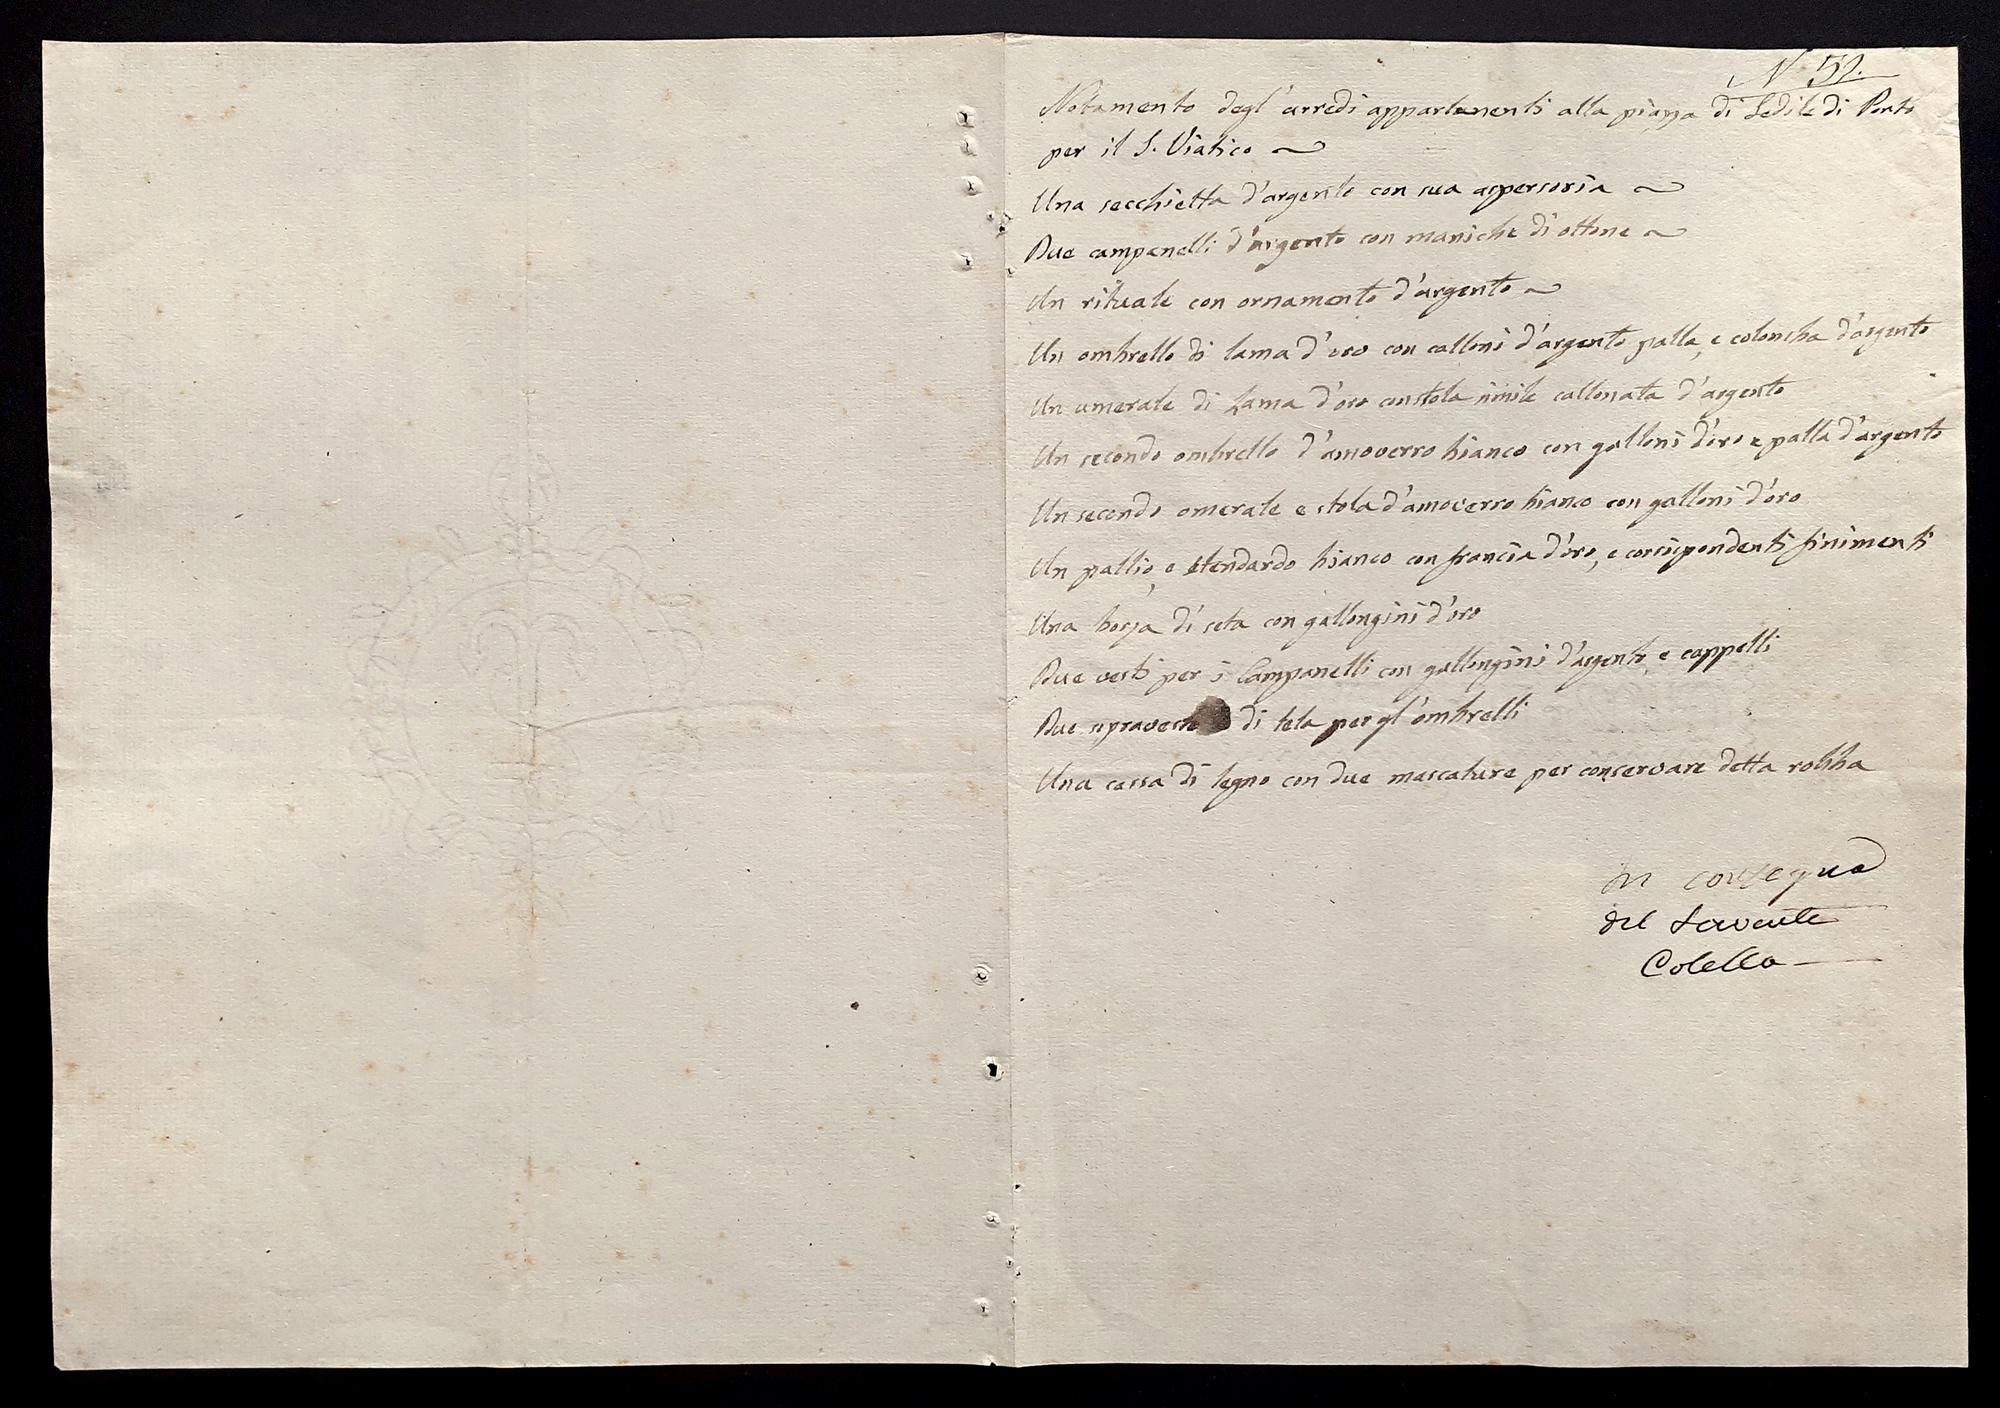 N 52.
Notamento degl'arredi appartenenti alla piazza di Sedile di Porto
per il S. Viatico
Una secchietta d'argento con sua aspersoria
Due campanelli d'argento con maniche di ottone
Un rituale con ornamento d'argento
Un ombrello di lama d'oro con calloni d'argento palla, e coloncha d'argento
Un umerale di Lama d'oro con stola simile callonata d'argento
Un secondo ombrello d'amoverro bianco con galloni d'oro e palla d'argento
Un secondo omerale e stola d'amoverro bianco con galloni d'oro
Un pallio, e stendardo bianco con francia d'oro, e corrispondenti finimenti
Una borza di seta con gallongini d'oro
Due vesti per i Campanelli con gallongini d'argento, e cappelli
Due sopraveste di tela per gl'ombrelli
Una cassa di legno con due mascature per conservare detta robba
In consegna
del Servente
Colella